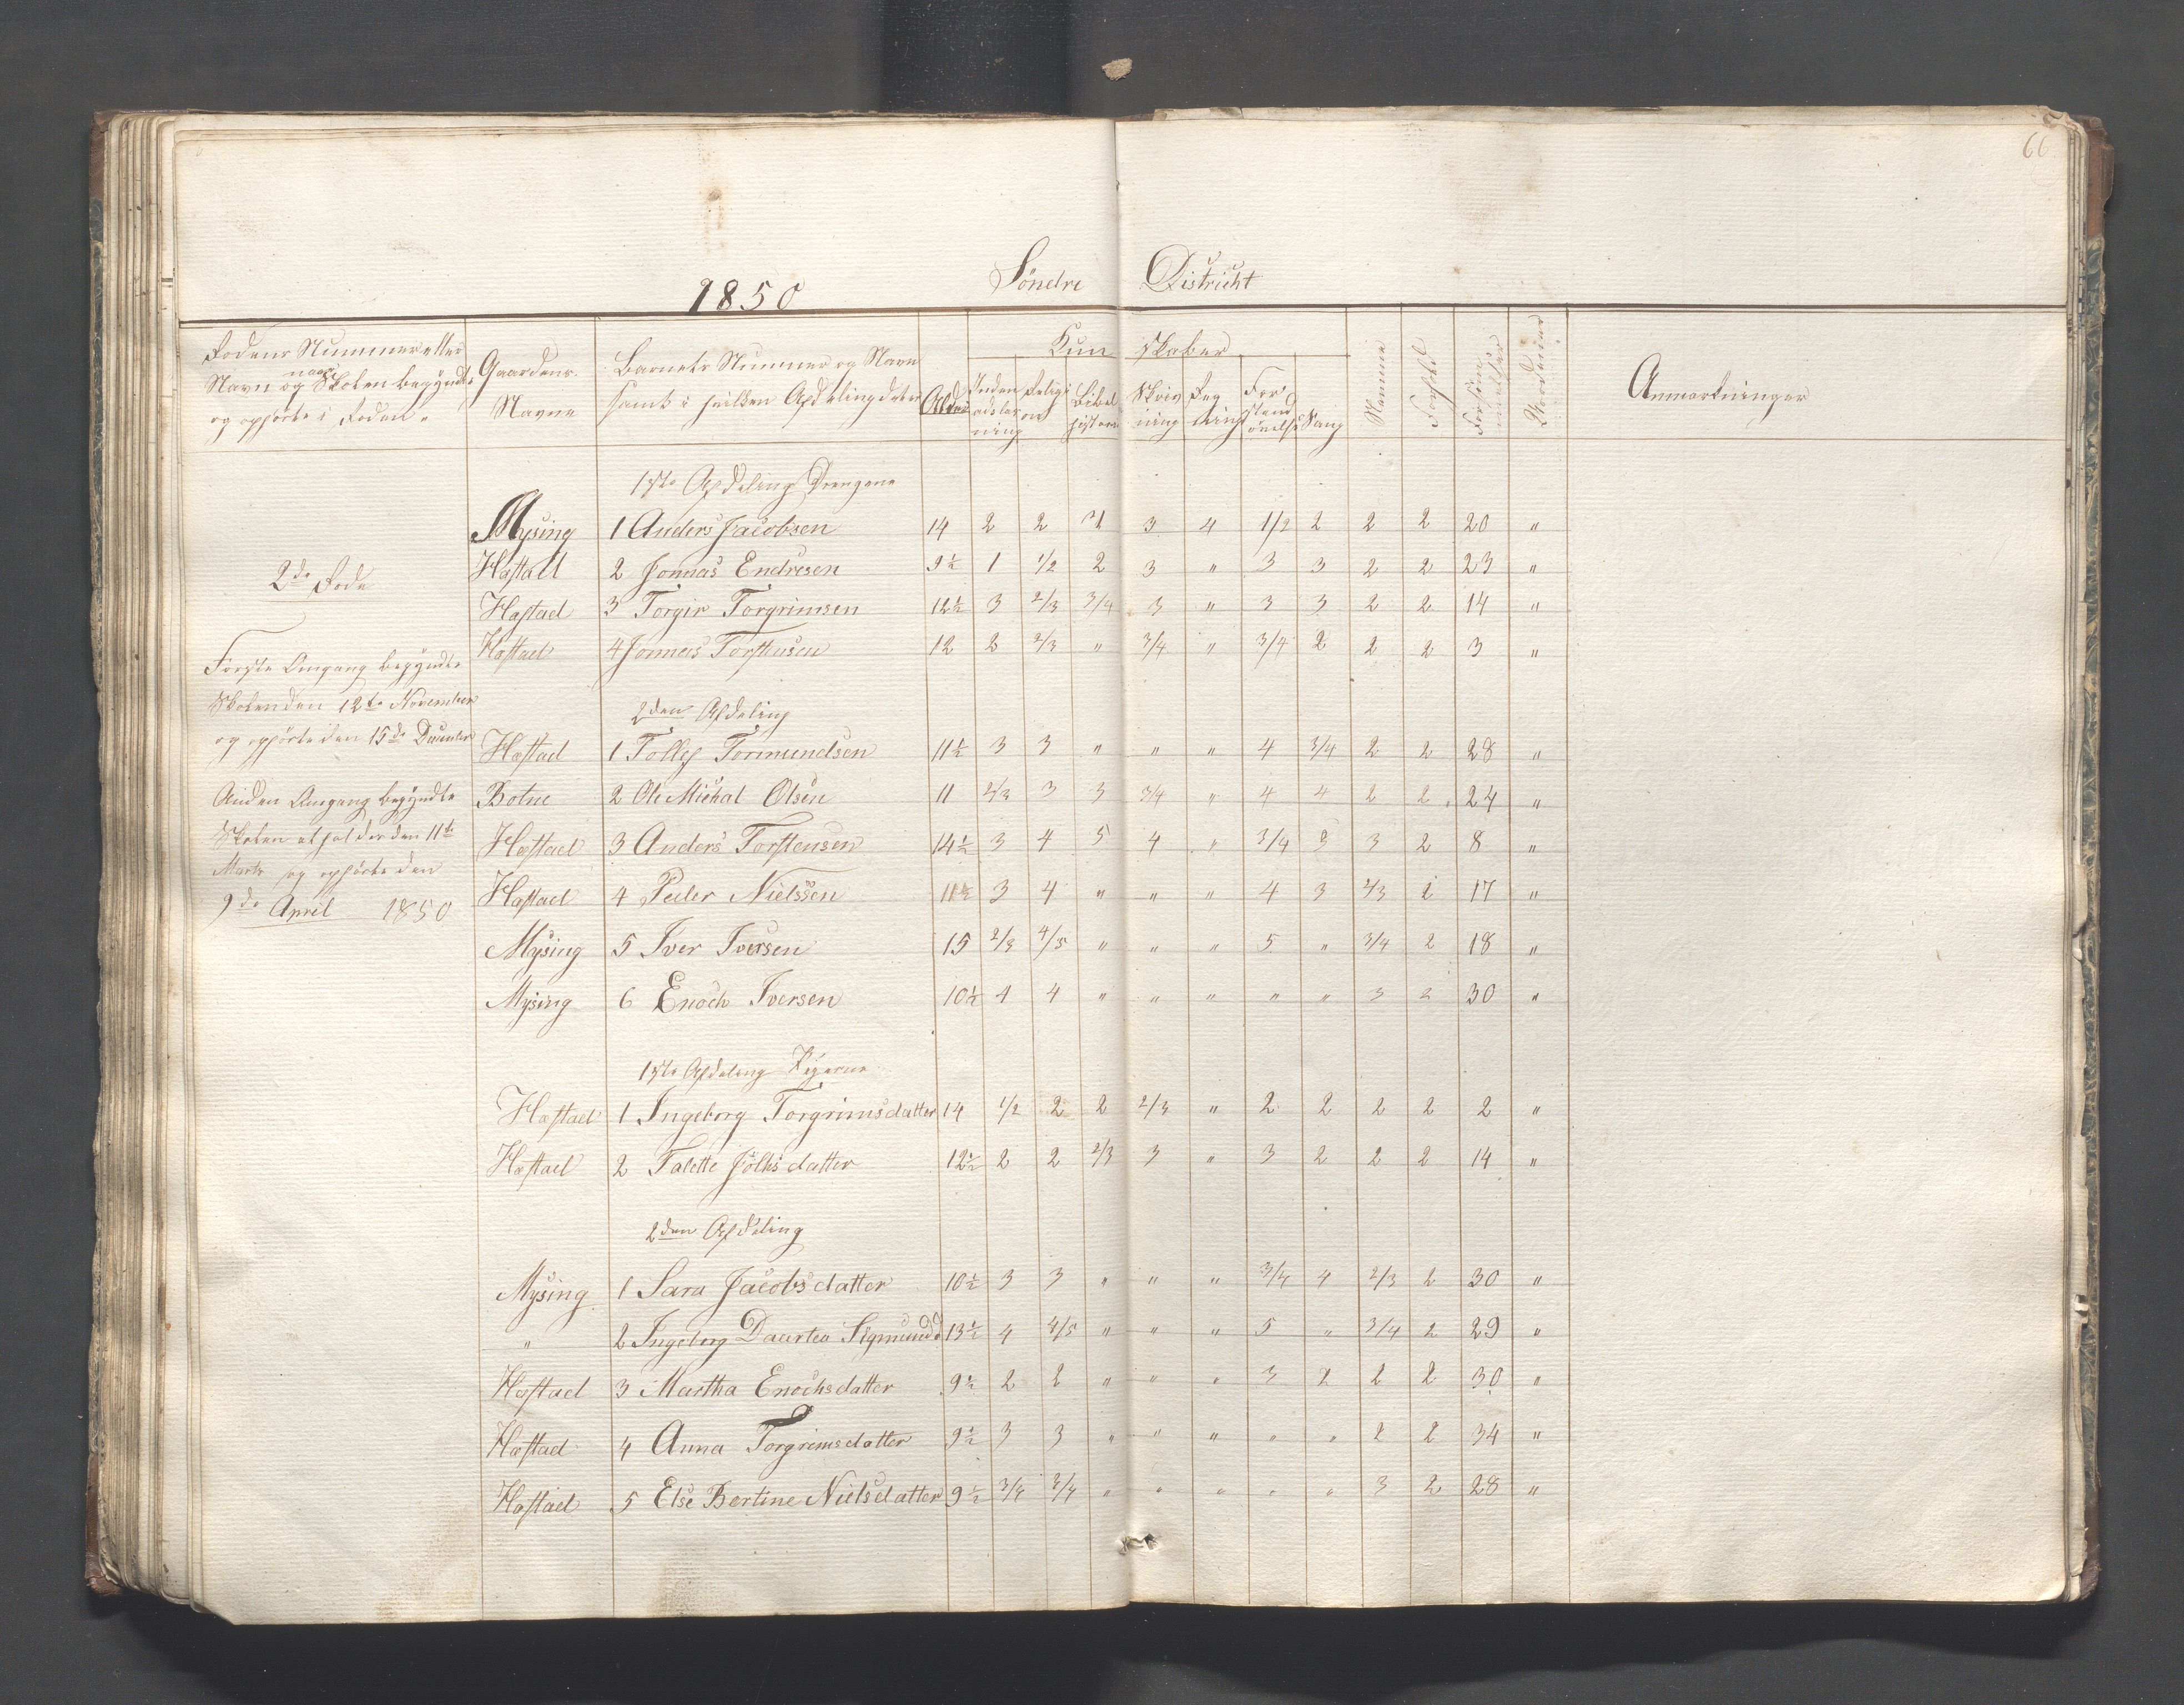 66
1850 Söndre Districht
Rodens Nummer eller
Navn og naar Skolen begyndte
og ophörte i Roden.
Gaardens
Navne
Barnets Nummer og Navn
samt i hvilken Afdeling det er
Alder
Kundskaber
Inden
adslæs
ning
Religi
on
Bibel
historie
Skriv
ning
Reg
ning
For
stand
övelse
Sang
Nemme
Forhold
Forsöm
melser
Anmærkninger
1ste Afdeling Drengene
Mysing 1 Anders Jacobsen 14 2 2 3 4 1/2 2 2 2 20 "
Hæstad 2 Jonnas Endresen 9½ 1 1/2 2 3 " 3 3 2 2 23 "
2de Rode
Hæstad 3 Torgir Torgrimsen 12½ 3 2/3 3/4 3 " 3 3 2 2 14 "
Hæstad 4 Jonnas Torstensen 12 2 2/3 " 3/4 " 3/4 2 2 2 3 "
Förste Omgang begyndte
Skolen den 12te November
og ophörte den 15de December
2den Afdeling
Hæstad 1 Tollef Tormundsen 11½ 3 3 " " " 4 3/4 2 2 28 "
Anden Omgang begyndte
Skolen at holdes den 11te
Marts og ophörte den
9de April 1850
Botne 2 Ole Michal Olsen 11 2/3 3 3 3/4 " 4 4 2 2 24 "
Hæstad 3 Anders Torstensen 14½ 3 4 5 4 " 3/4 3 3 2 8 "
Hæstad 4 Peder Nielssen 11½ 3 4 " " " 4 3 2/3 2 17 "
Mysing 5 Iver Iversen 15 2/3 4/5 " " " 5 " 3/4 2 18 "
Mysing 6 Enoch Iversen 10½ 4 4 " " " " " 3 2 30 "
1ste Afdeling Pigerne
Hæstad 1 Ingeborg Torgrimsdatter 14 1/2 2 2 2/3 " 2 2 2 2 2 "
Hæstad 2 Talette Jölhsdatter 12½ 2 2 2/3 3 " 3 2 2 2 14 "
2den Afdeling
Mysing 1 Sara Jacobsdatter 10½ 3 3 " " " 3/4 4 2/3 2 30 "
" 2 Ingeborg Daartea Sigmundsd 13½ 4 4/5 " " " 5 " 3/4 2 29 "
Hæstad 3 Martha Enochsdatter 9½ 2 2 " " " 3 2 2 2 30 "
Hæstad 4 Anna Torgrimsdatter 9½ 3 3 " " " " " 2 2 34 "
Hæstad 5 Else Bertine Nielsdatter 9½ 3/4 3/4 " " " " " 3 2 28 "